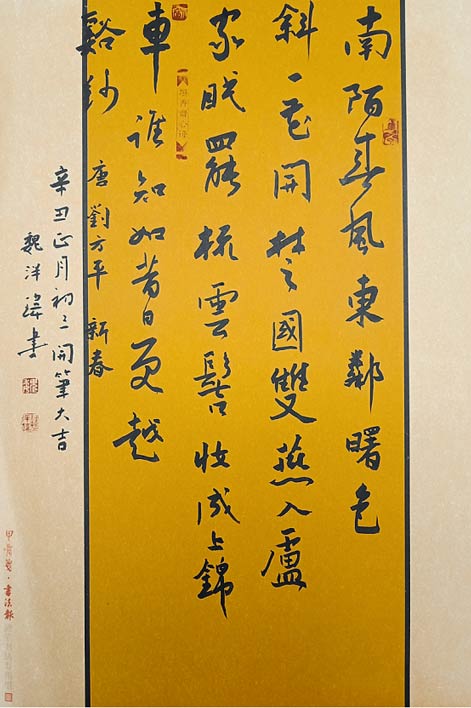 南陌春風東鄰曙色
斜一花開楚國雙燕入盧
家眠罷梳雲髻妝成上錦
車誰知如昔日更越
谿紗 唐劉方平 新春
辛丑正月初三開筆大吉
魏洋書
書法報